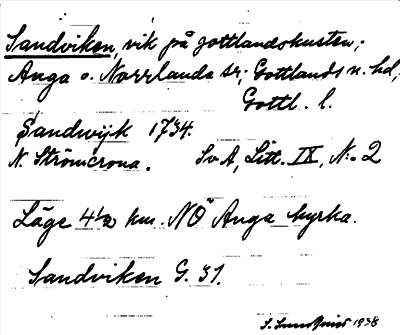 Sandviken, vik på gottlandskusten;
Anga o. Norrlanda sr; Gottlands n. hd;
Gottl. l.
Sandwijk 1734.
N. Strömcrona. SvA, Litt. IX, N:o 2
Läge 4 1/2 km. NÖ Anga kyrka.
Sandviken G. 31.
1938